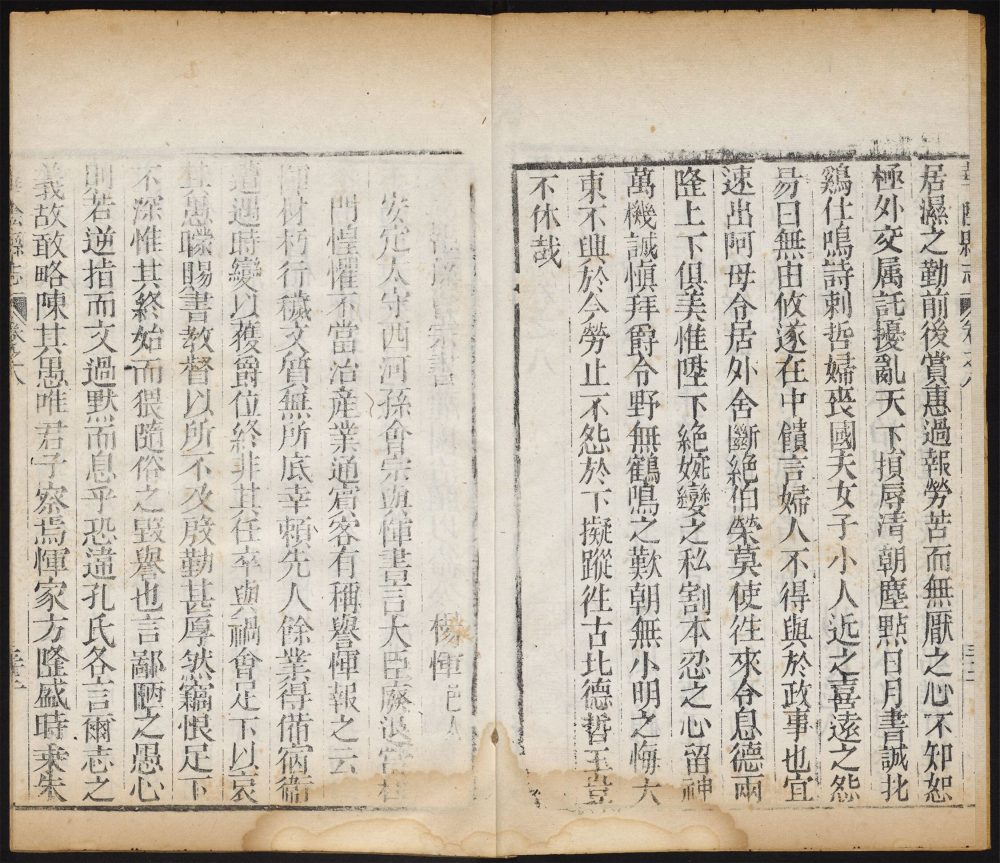 華陰縣志 卷之八 三十二
居濕之勤前後賞惠過報勞苦而無厭之心不知恕
極外交属託擾亂天下損辱清朝塵點日月書誠北
鷄仕鳴詩刺哲婦喪國夫女子小人近之喜遠之怨
昜曰無由攸遂在中饋言婦人不得與於政事也宜
速出阿母令居外舍斷絶伯榮莫使往來令息德兩
隆上下俱美惟陛下絶婉孌之私割本忍之心留神
萬機誠慎拜爵令野無鶴鳴之歎朝無小明之悔大
東不興於今勞止不怨於下擬蹤徃古比德哲王豈
不休哉
孫會宗書 楊惲邑人
安定太守西河孫會宗與惲書言大臣廢退當杜
門惶懼不當治産業通賓客有稱譽惲報之云
惲材朽行穢文質無所底幸賴先人餘業得備宿衛
遭遇時變以獲爵位終非其任卒與禍會足下以哀
其愚矇賜書教督以所不及慇勤甚厚然竊恨足下
不深惟其終始而猥隨俗之毀譽也言鄙陋之愚心
則若逆指而文過默而息乎恐違孔氏各言爾志之
義故敢略陳其愚唯君子察焉惲家方隆盛時乗朱
華陰縣志 卷之八